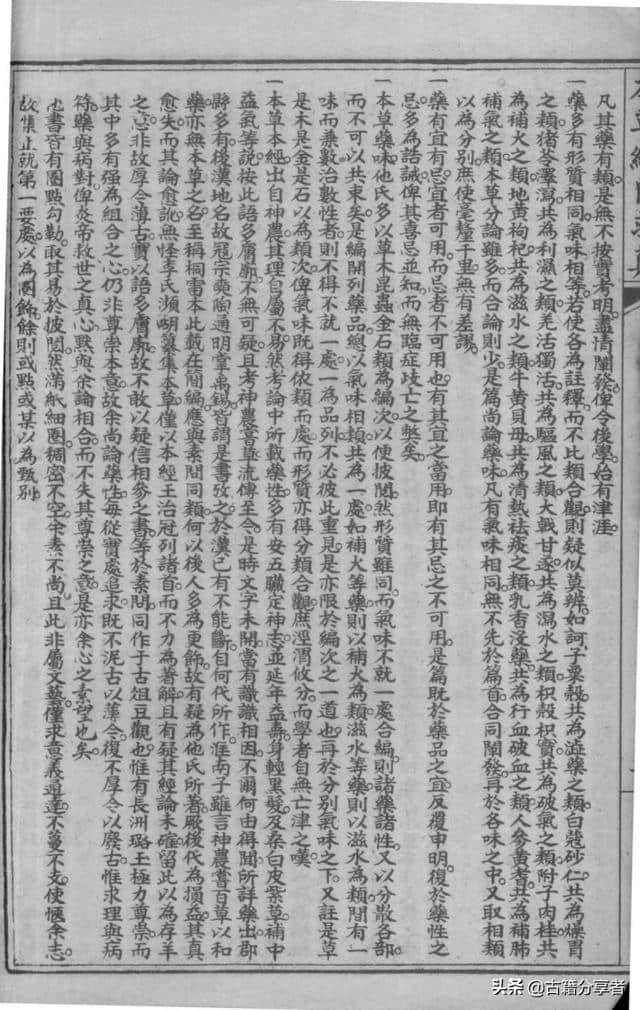 凡其藥有類是無不按實考明盡情闡發俾令後學始有津涯
一藥多有形質相同氣味相等若使各為註釋而不比類合觀則疑似莫辨如訶子粟殼共為澁藥之類白蔻砂仁共為燥胃
之類猪苓澤瀉共為利濕之類羌活獨活共為驅風之類大戟甘遂共為瀉水之類枳殼枳實共為破氣之類附子肉桂共
為補火之類地黃枸杞共為滋水之類牛黃貝母共為清熱祛痰之類乳香沒藥共為行血破血之類人參黃耆共為補肺
補氣之類本草分論雖多而合論則少是篇尚論藥味凡有氣味相同無不先於篇首合同闡發再於各味之中又取相類
以為分別庶使毫釐千里無有差謬
一藥有宜有忌宜者可用而忌者不可用也有其宜之當用即有其忌之不可用是篇既於藥品之宜反覆申明復於藥性之
忌多為誥誡俾其喜忌並知而無臨症歧亡之弊矣
一本草藥味他氏多以草木昆蟲金石類為編次以便披閱然形質雖同而氣味不就一處合編則諸藥諸性又以分散各部
而不可以共束矣是編開列藥品總以氣味相類共為一處如補火等藥則以補火為類滋水等藥則以滋水為類間有一
味而兼數治數性者則不得不就一處一為品列不必彼此重見是亦限於編次之一道也再於分別氣味之下又註是草
是木是金是石以為類次俾氣味既得依類而處而形質亦得分類合觀庶涇渭攸分而學者自無亡津之嘆
一本草本經出自神農其理自屬不易然考論中所載藥性多有安五臟定神志並延年益壽身輕黑髮及桑白皮紫草補中
益氣等說按此語多膚廓不無可疑且考神農嘗草流傳至今是時文字未開當有識識相因不爾何由得聞所詳藥出郡
縣多有後漢地名故冠宗奭陶通明掌禹錫皆謂是書攷之於漢已有不能斷自何代所作淮南子雖言神農嘗百草以和
藥亦無本草之名至稱桐雷本此載在簡編應與素問同類何以後人多為更飾故有疑為他氏所著厥後代為損益其真
愈失而其論愈訛無怪李氏瀕明纂集本草僅以本經主治冠列諸首而不力為著解且有疑其經論未確留此以為存羊
之意非故厚今薄古實以語多膚廓故不敢以疑信相參之書等於素問同作千古俎豆觀也惟有長洲璐玉極力尊崇而
其中多有强為組合之心仍非尊崇本意故余尚論藥性每從實處追求既不泥古以薄今復不厚今以廢古惟求理與病
符藥與病對俾炎帝救世之真心默與余論相合而不失其尊崇之意是亦余心之素望也矣
他書皆有圈點勾勒取其易於披閱然滿紙細圈稠密不空余素不尚且此非屬文藝僅求意義通達不蔓不支使愜余志
故集止就第一要處以為圈飾餘則或點或某以為甄別
头条@古籍分享者